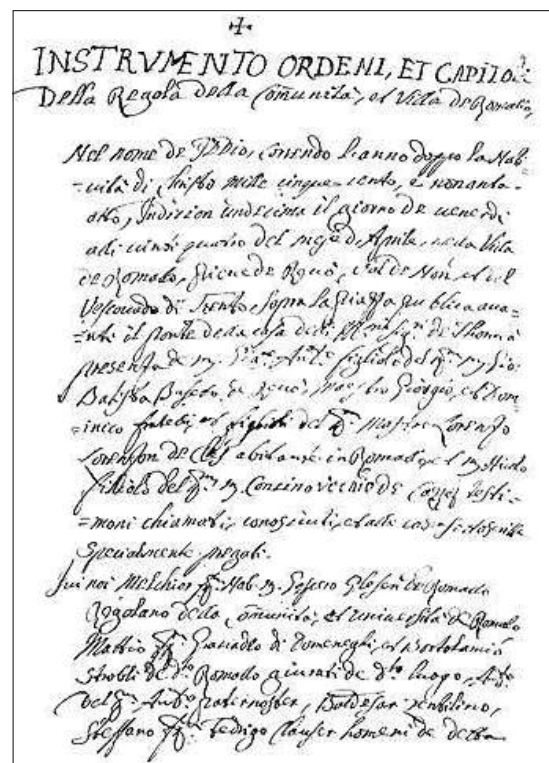 INSTRVMENTO ORDENI, ET CAPITOLI
Della Regola della Cõmunità, et Villa de Romallo,
Nel nome de Dio, Correndo l'anno doppo la Nati=
=uità di Christo mille cinque cento, e nonanta
otto, Indicion undecima il giorno de uenerdi
adi uinti quatro del mese de Aprile, nella Villa
de Romallo, Pieue de Reuò, Val de Non, et del
Vescouado di Trento, sopra la piazza publica aua=
=nti il ponte della casa delli di Thomà
presenti de m. Gio: Ant.º figliolo del q. m. Gio:
Batista de Reuò, Maestro Giorgio, et Dom=
=inico fratelli, et figlioli del q. Mastro Lorenzo
Lorenzon de Cles abitanti in Romallo, et m. Nicolo
figliolo del q. m. Concino vechio de testi=
=moni chiamati, conosciuti, et alle cose
specialmente pregati.
Qui noi Melchior q. m. Gaspero de Romallo
Regolano della Cõmunità, et Vniuersità de Romallo
Mattio q. di Domeneghi, et Bortolamio
de d.to Romallo giurati de d.to luogo, Ant.º
del q. Ant.º Paternoster, Baldesar Gentilino,
Steffano q. Fedrigo Clauser homeni de detta